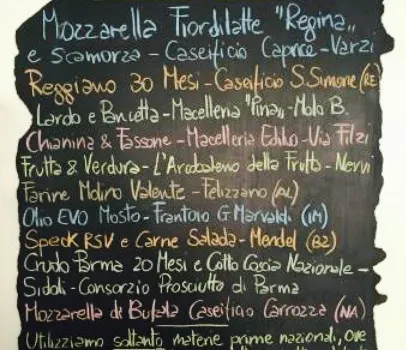 Mozzarella Fiordilatte "Regina"
e Scamorza - Caseificio Caprice - Varzi
Reggiano 30 Mesi - Caseificio S.Simone (RE)
Lardo e Pancetta - Macelleria "Pina" - Molo B.
Chianina & Fassone - Macelleria Ediho - Via Filzi
Frutta & Verdura - L'Arcobaleno della Frutta - Nervi
Farine Molino Valente - Felizzano (AL)
Olio EVO Mosto - Frantoio G Marvaldi (IM)
Speck RSV e Carne Salada - Mendel (BZ)
Crudo Parma 20 Mesi e Cotto Coscia Nazionale -
Sidoli - Consorzio Prosciutto di Parma
Mozzarella di Bufala Caseificio Carrozza (NA)
Utilizziamo soltanto materie prime nazionali, ove